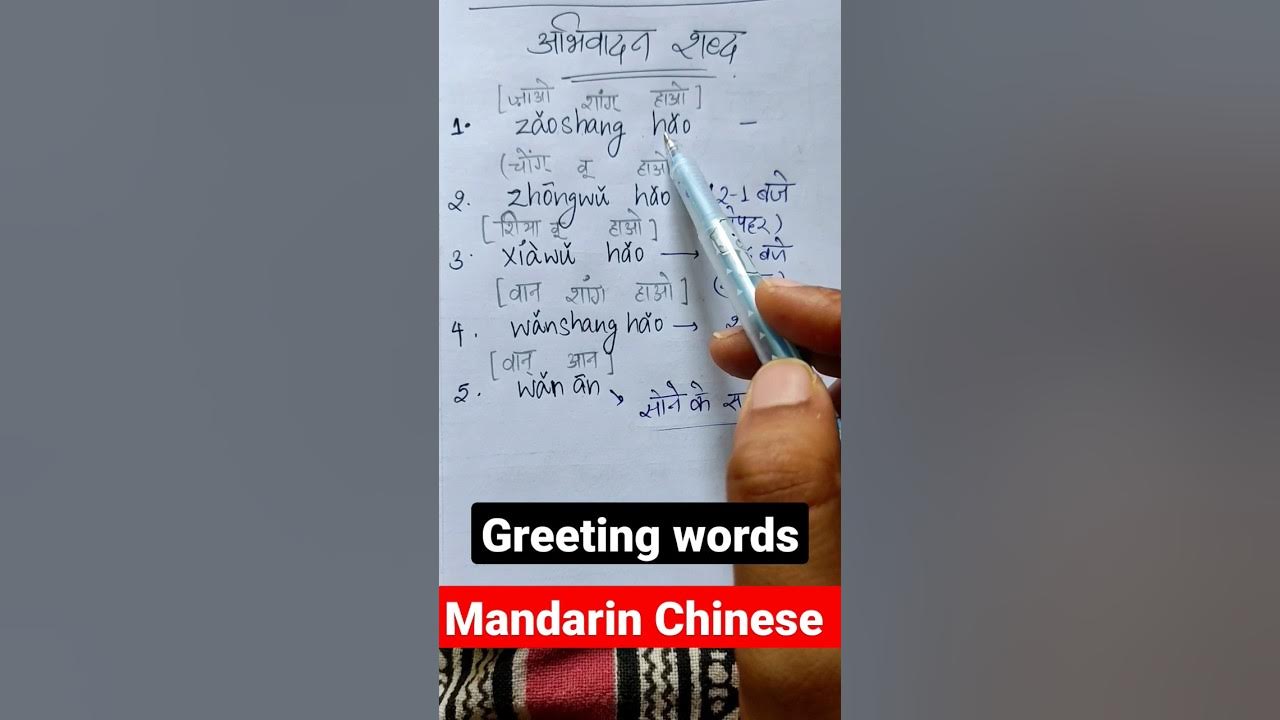 अभिवादन शब्द
[ज़ाओ शांग हाओ]
1. zǎoshang hǎo –
(चोंग वू हाओ
2. zhōngwǔ hǎo 2-1 बजे
[शिआ वू हाओ]
3. xiàwǔ hǎo → बजे
[वान शांग हाओ]
4. wǎnshang hǎo →
[वान आन]
5. wǎn ān ↘ सोने के
Greeting words
Mandarin Chinese